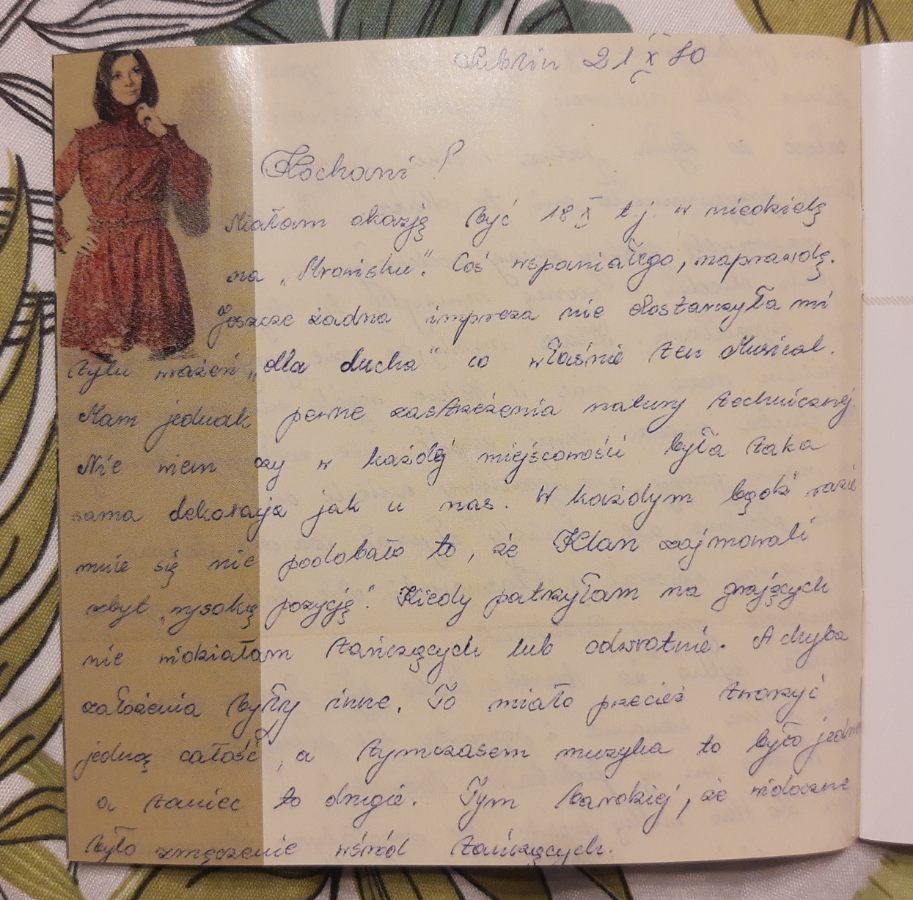 Lublin 21 X 70
Kochani!
Miałam okazję być 18 X t.j. w niedzielę
na „Mrowisku". Coś wspaniałego, naprawdę.
Jeszcze żadna impreza nie dostarczyła mi
tylu wrażeń „dla ducha" co właśnie ten Musical.
Mam jednak pewne zastrzeżenia natury technicznej.
Nie wiem czy w każdej miejscowości była taka
sama dekoracja jak u nas. W każdym bądź razie
mnie się nie podobało to, że Klan zajmowali
zbyt „wysoką pozycję". Kiedy patrzyłam na grających
nie widziałam tańczących lub odwrotnie. A chyba
założenia były inne. To miało przecież tworzyć
jedną całość, a tymczasem muzyka to było jedno
a taniec to drugie. Tym bardziej, że widoczne
było zmęczenie wśród tańczących.